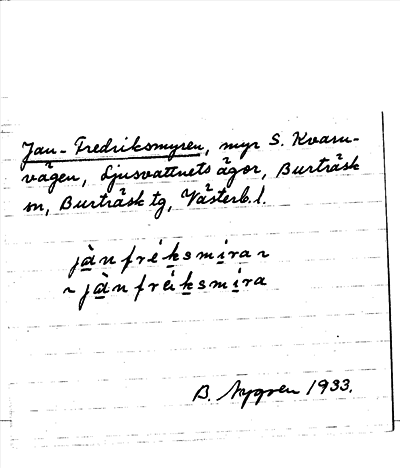 Jan-Fredriksmyren, myr S. Kvarn-
vägen, Ljusvattnets ägor, Burträsk
sn, Burträsk tg, Västerb. l.
jànfréksmira ~
~ jànfréiksmira
B. Nygren 1933.